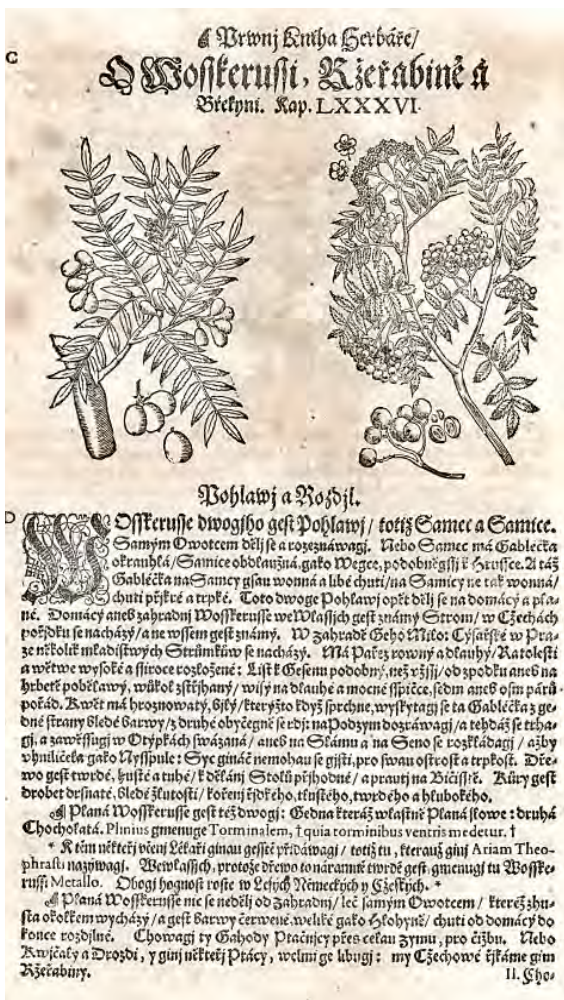 C
Prwnj Kniha Herbáře/
O Wosskerussi, Ržeřabině á
Břekyni. Kap. LXXXVI.
Pohlawj a Rozdjl.
D
WOsskerusse dwogjho gest Pohlawj/ totiž Samec a Samice.
Samým Owotcem dělj se a rozeznáwagj. Nebo Samec má Gabléčka
okrauhlá/ Samice obdlaužná, gako Wegce, podobněgssj k Hrussce. A táž
Gabléčka na Samcy gsau wonná a libé chuti/ na Samicy ne tak wonná/
chuti přjkré a trpké. Toto dwoge Pohlawj opět dělj se na domácý a pla-
né. Domácý aneb zahradnj Wosskerusse we Wlassjch gest známý Strom/ w Cžechách
pořjdku se nacházý/ a ne wssem gest známý. W Zahradě Geho Milo: Cýsařské w Pra-
ze několik mladistwých Strůmků se nacházý. Má Pařez rowný a dlauhý/ Ratolesti
a wětwe wysoké a ssiroce rozložené: List k Gesenu podobný, než vžssj/ od zpodku aneb na
hrbetě poběláwý, wůkol zstřjhaný/ wisý na dlauhé a mocné sspičce, sedm aneb osm párů
pořád. Kwět má hroznowatý, bjlý/ kterýžto když sprchne, wyskytagj se ta Gabléčka z ge-
dné strany bledé barwy/ z druhé obyčegně se rdj: na Podzym dozráwagj/ a tehdáž se trha-
gj, a zawěssugj w Otýpkách swázaná/ aneb na Slámu a na Seno se rozkládagj/ ažby
vhniličela gako Nysspule: Syc ginác nemohau se gjsti, pro swau ostrost a trpkost. Dře-
wo gest twrdé, husté a tuhé/ k dělánj Stolů přjhodné/ a prautj na Bičisstě. Kůry gest
drobet drsnaté, bledé žlutosti/ kořenj řjdkého, tlustého, twrdého a hlubokého.
Planá Wosskerusse gest též dwogj: Gedna kteráž wlastně Planá slowe: druhá
Chocholatá. Plinius gmenuge Torminalem, † quia torminibus ventris medetur. †
* K těm někteřj včenj Lékaři ginau gesstě přidáwagj/ totiž tu, kterauž ginj Ariam Theo-
phrasti nazýwagj. We Wlassjch, protože dřewo to náramně twrdé gest, gmenugj tu Wosske-
russi Metallo. Obogj hognost roste w Lesých Německých y Cžeských. *
Planá Wosskerusse nic se nedělj od Zahradnj/ leč samým Owotcem/ kteréž zhu-
sta okolkem wycházý/ a gest barwy čerwené, weliké gako Hlohyně/ chuti od domácý do
konce rozdjlné. Chowagj ty Gahody Ptáčnjcy přes celau zymu, pro čižbu. Nebo
Kwjčaly a Drozdi, y ginj někteřj Ptácy, welmi ge libugj: my Cžechowé řjkáme gim
Ržeřabiny.
II. Cho-